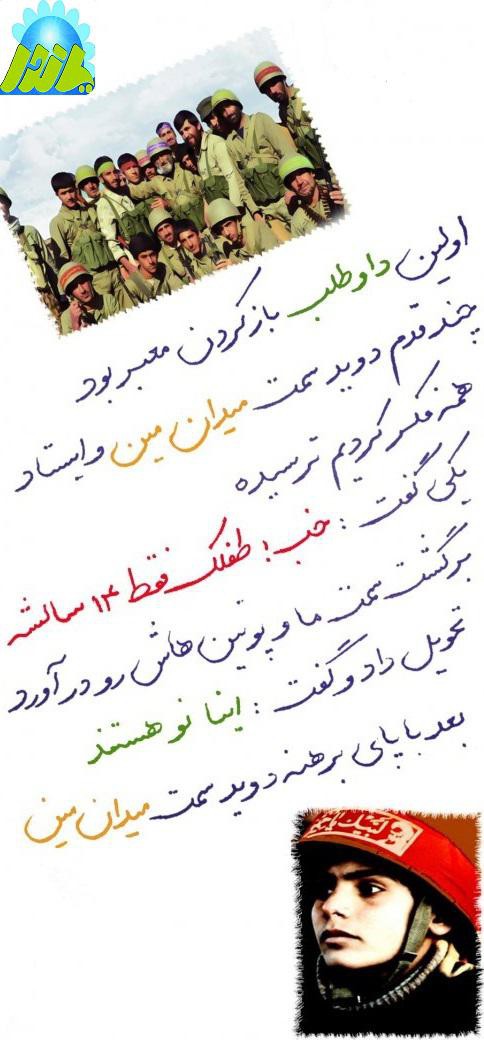 اولین داوطلب باز کردن معبر بود
چند قدم دوید سمت میدان مین و ایستاد
همه فکر کردیم ترسیده
یکی گفت : خب ! طفلک فقط ۱۴ سالشه
برگشت سمت ما و پوتین هاش رو در آورد
تحویل داد و گفت : اینا نو هستند
بعد با پای برهنه دوید سمت میدان مین
لبیک